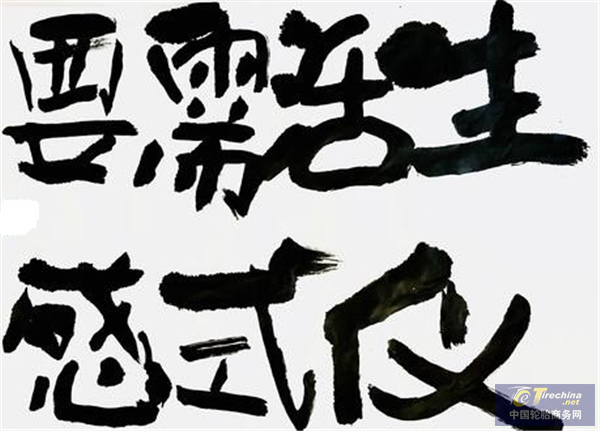 生活需要
仪式感
Tirechina
.net
中国轮胎商务网